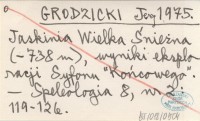 GRODZICKI Jerzy 1975.
Jaskinia Wielka Śnieżna
(-738 m), wyniki eksplo
racji Syfonu "Końcowego".
— Speleologia 8, nr
119-126.